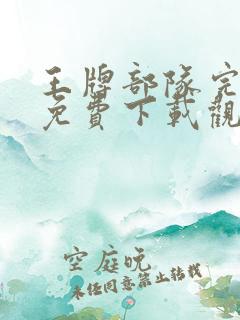 王牌部隊完
免費下載觀
空庭晚
未经同意禁止转载